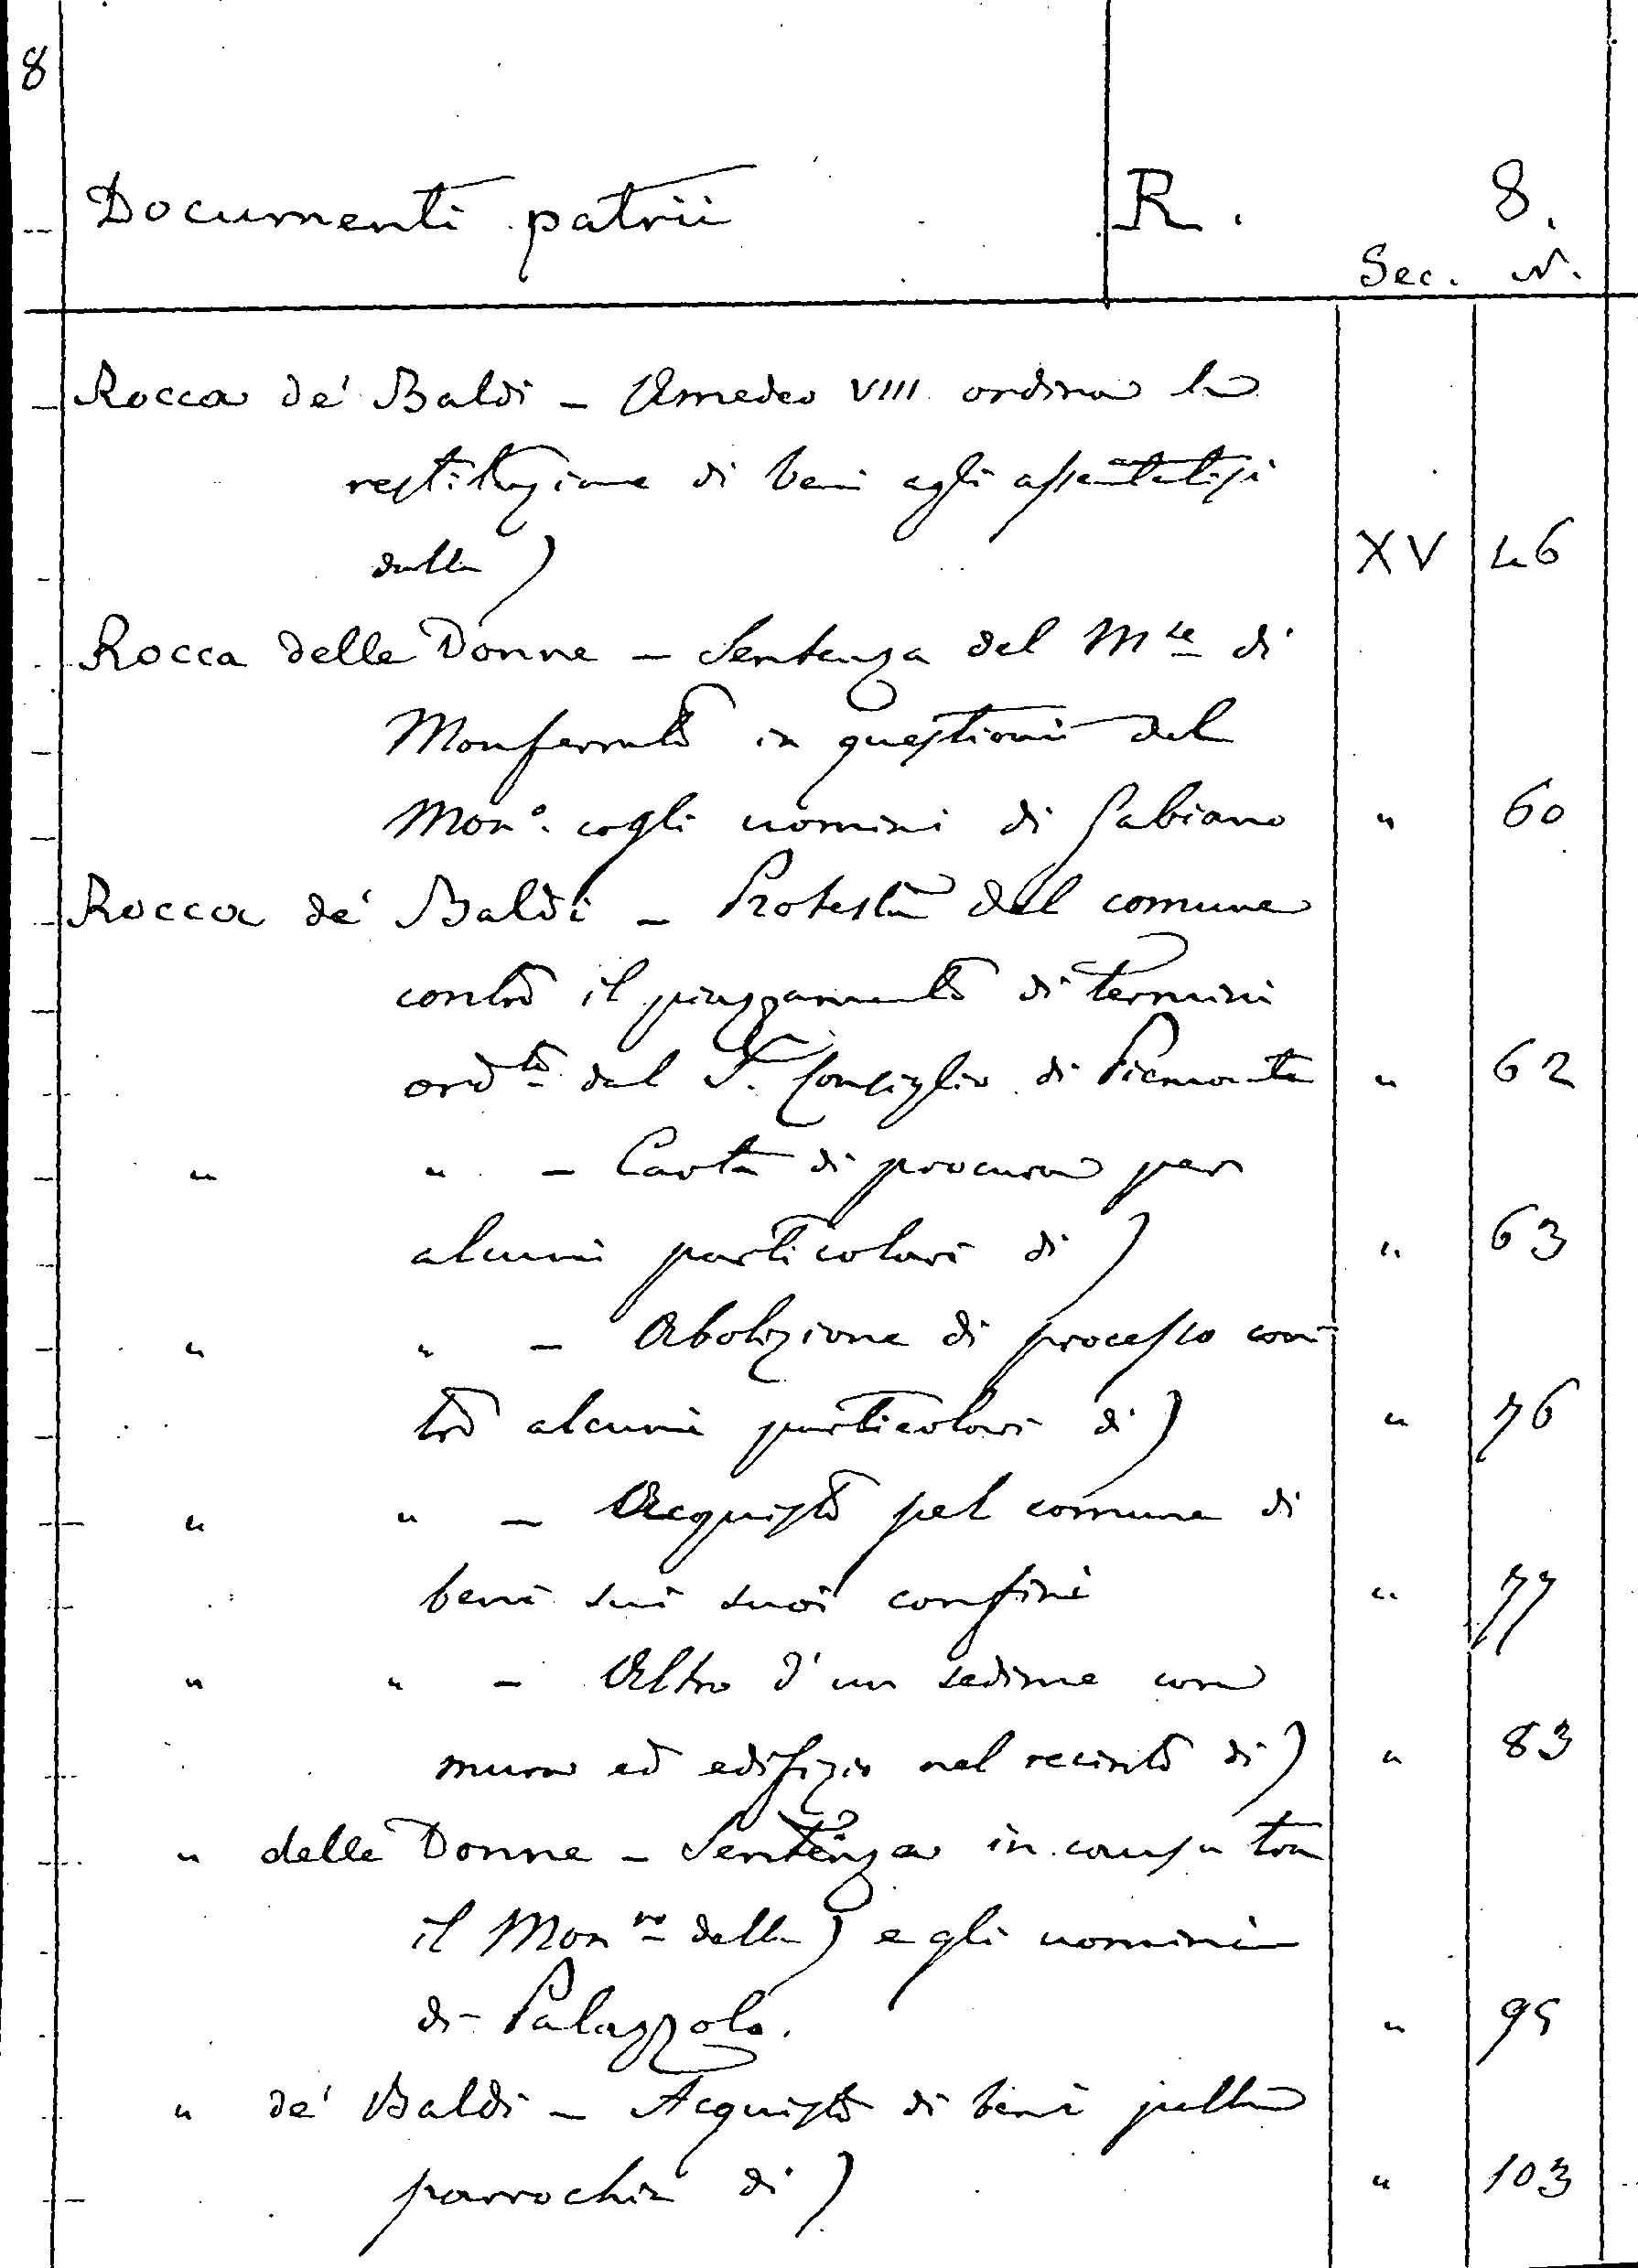 8
Documenti patrii R. 8.
Sec. N.
Rocca de' Baldi – Amedeo VIII ordina la
restituzione di beni agli assentatisi
dalla ) XV 46
Rocca delle Donne – Sentenza del M.se di
Monferrato in questioni del
Mon.o cogli uomini di Gabiano " 60
Rocca de' Baldi – Protesta del comune
contro il piazzamento di termini
ord.to dal S. Consiglio di Piemonte " 62
" " – Carta di procura per
alcuni particolari di ) " 63
" " – Abolizione di processo con-
tro alcuni particolari di ) " 76
" " – Acquisto pel comune di
beni sui suoi confini " 77
" " – Altro d'un sedime con
muro ed edifizio nel recinto di ) " 83
" delle Donne – Sentenza in causa tra
il Mon.ro della ) e gli uomini
di Palazzolo. " 95
" de' Baldi – Acquisto di beni pella
parrochia di ) " 103